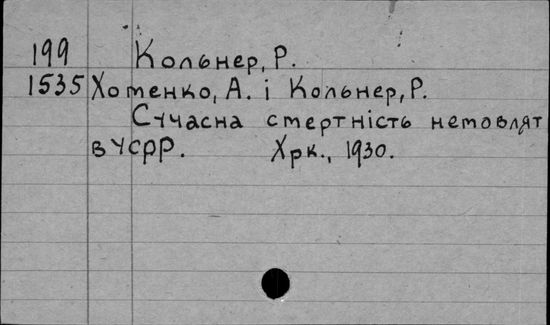 199 Кольнер, Р.
1535 Хотенко, А. і Кольнер, Р.
Сучасна смертність немовлят
в УСРР. Хрк., 1930.